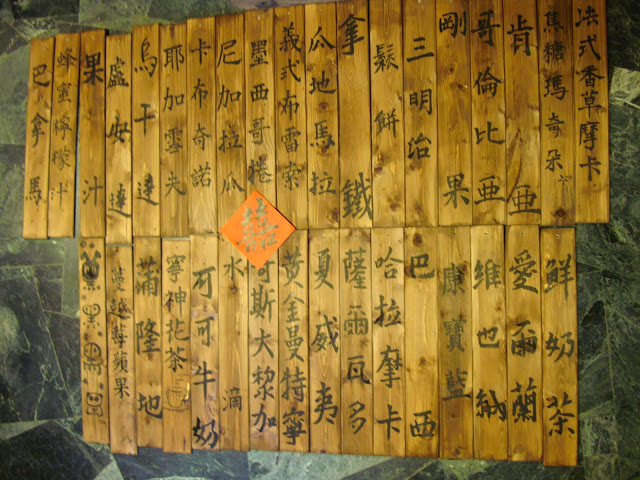 法式香草摩卡
焦糖瑪奇朵
肯亞
哥倫比亞
剛果
三明治
鬆餅
拿鐵
瓜地馬拉
義式布雷索
墨西哥捲
尼加拉瓜
卡布奇諾
耶加雪夫
烏干達
盧安達
果汁
蜂蜜檸檬汁
巴拿馬
鮮奶茶
愛爾蘭
維也納
康寶藍
巴西
哈拉摩卡
薩爾瓦多
夏威夷
黃金曼特寧
哥斯大黎加
水滴
可可牛奶
寧神花茶
蒲隆地
蔓越莓蘋果
黑黑